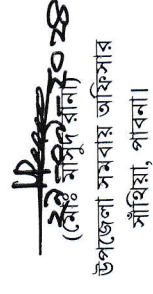 (মোঃ মাসুদ রানা)
উপজেলা সমবায় অফিসার
সাঁথিয়া, পাবনা।